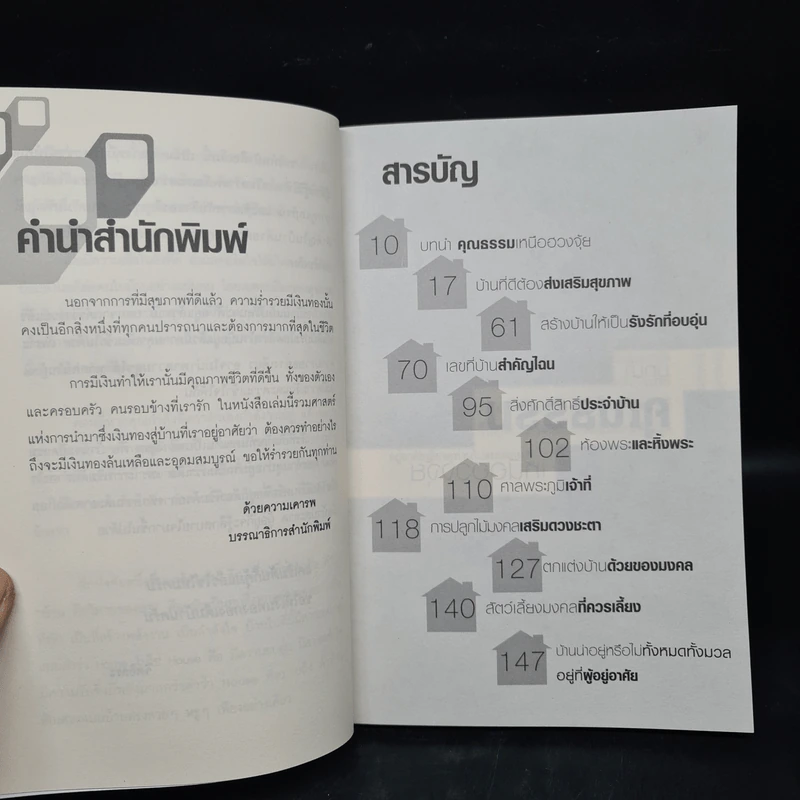 คำนำสำนักพิมพ์
นอกจากการที่มีสุขภาพที่ดีแล้ว ความร่ำรวยมีเงินทองนั้น
คงเป็นอีกสิ่งหนึ่งที่ทุกคนปรารถนาและต้องการมากที่สุดในชีวิต
การมีเงินทำให้เรานั้นมีคุณภาพชีวิตที่ดีขึ้น ทั้งของตัวเอง
และครอบครัว คนรอบข้างที่เรารัก ในหนังสือเล่มนี้รวมศาสตร์
แห่งการนำมาซึ่งเงินทองสู่บ้านที่เราอยู่อาศัยว่า ต้องควรทำอย่างไร
ถึงจะมีเงินทองล้นเหลือและอุดมสมบูรณ์ ขอให้ร่ำรวยกันทุกท่าน
ด้วยความเคารพ
บรรณาธิการสำนักพิมพ์
สารบัญ
10 บทนำ คุณธรรมเหนือฮวงจุ้ย
17 บ้านที่ดีต้องส่งเสริมสุขภาพ
61 สร้างบ้านให้เป็นรังรักที่อบอุ่น
70 เลขที่บ้านสำคัญไฉน
95 สิ่งศักดิ์สิทธิ์ประจำบ้าน
102 ห้องพระและหิ้งพระ
110 ศาลพระภูมิเจ้าที่
118 การปลูกไม้มงคลเสริมดวงชะตา
127 ตกแต่งบ้านด้วยของมงคล
140 สัตว์เลี้ยงมงคลที่ควรเลี้ยง
147 บ้านน่าอยู่หรือไม่ทั้งหมดทั้งมวล
อยู่ที่ผู้อยู่อาศัย